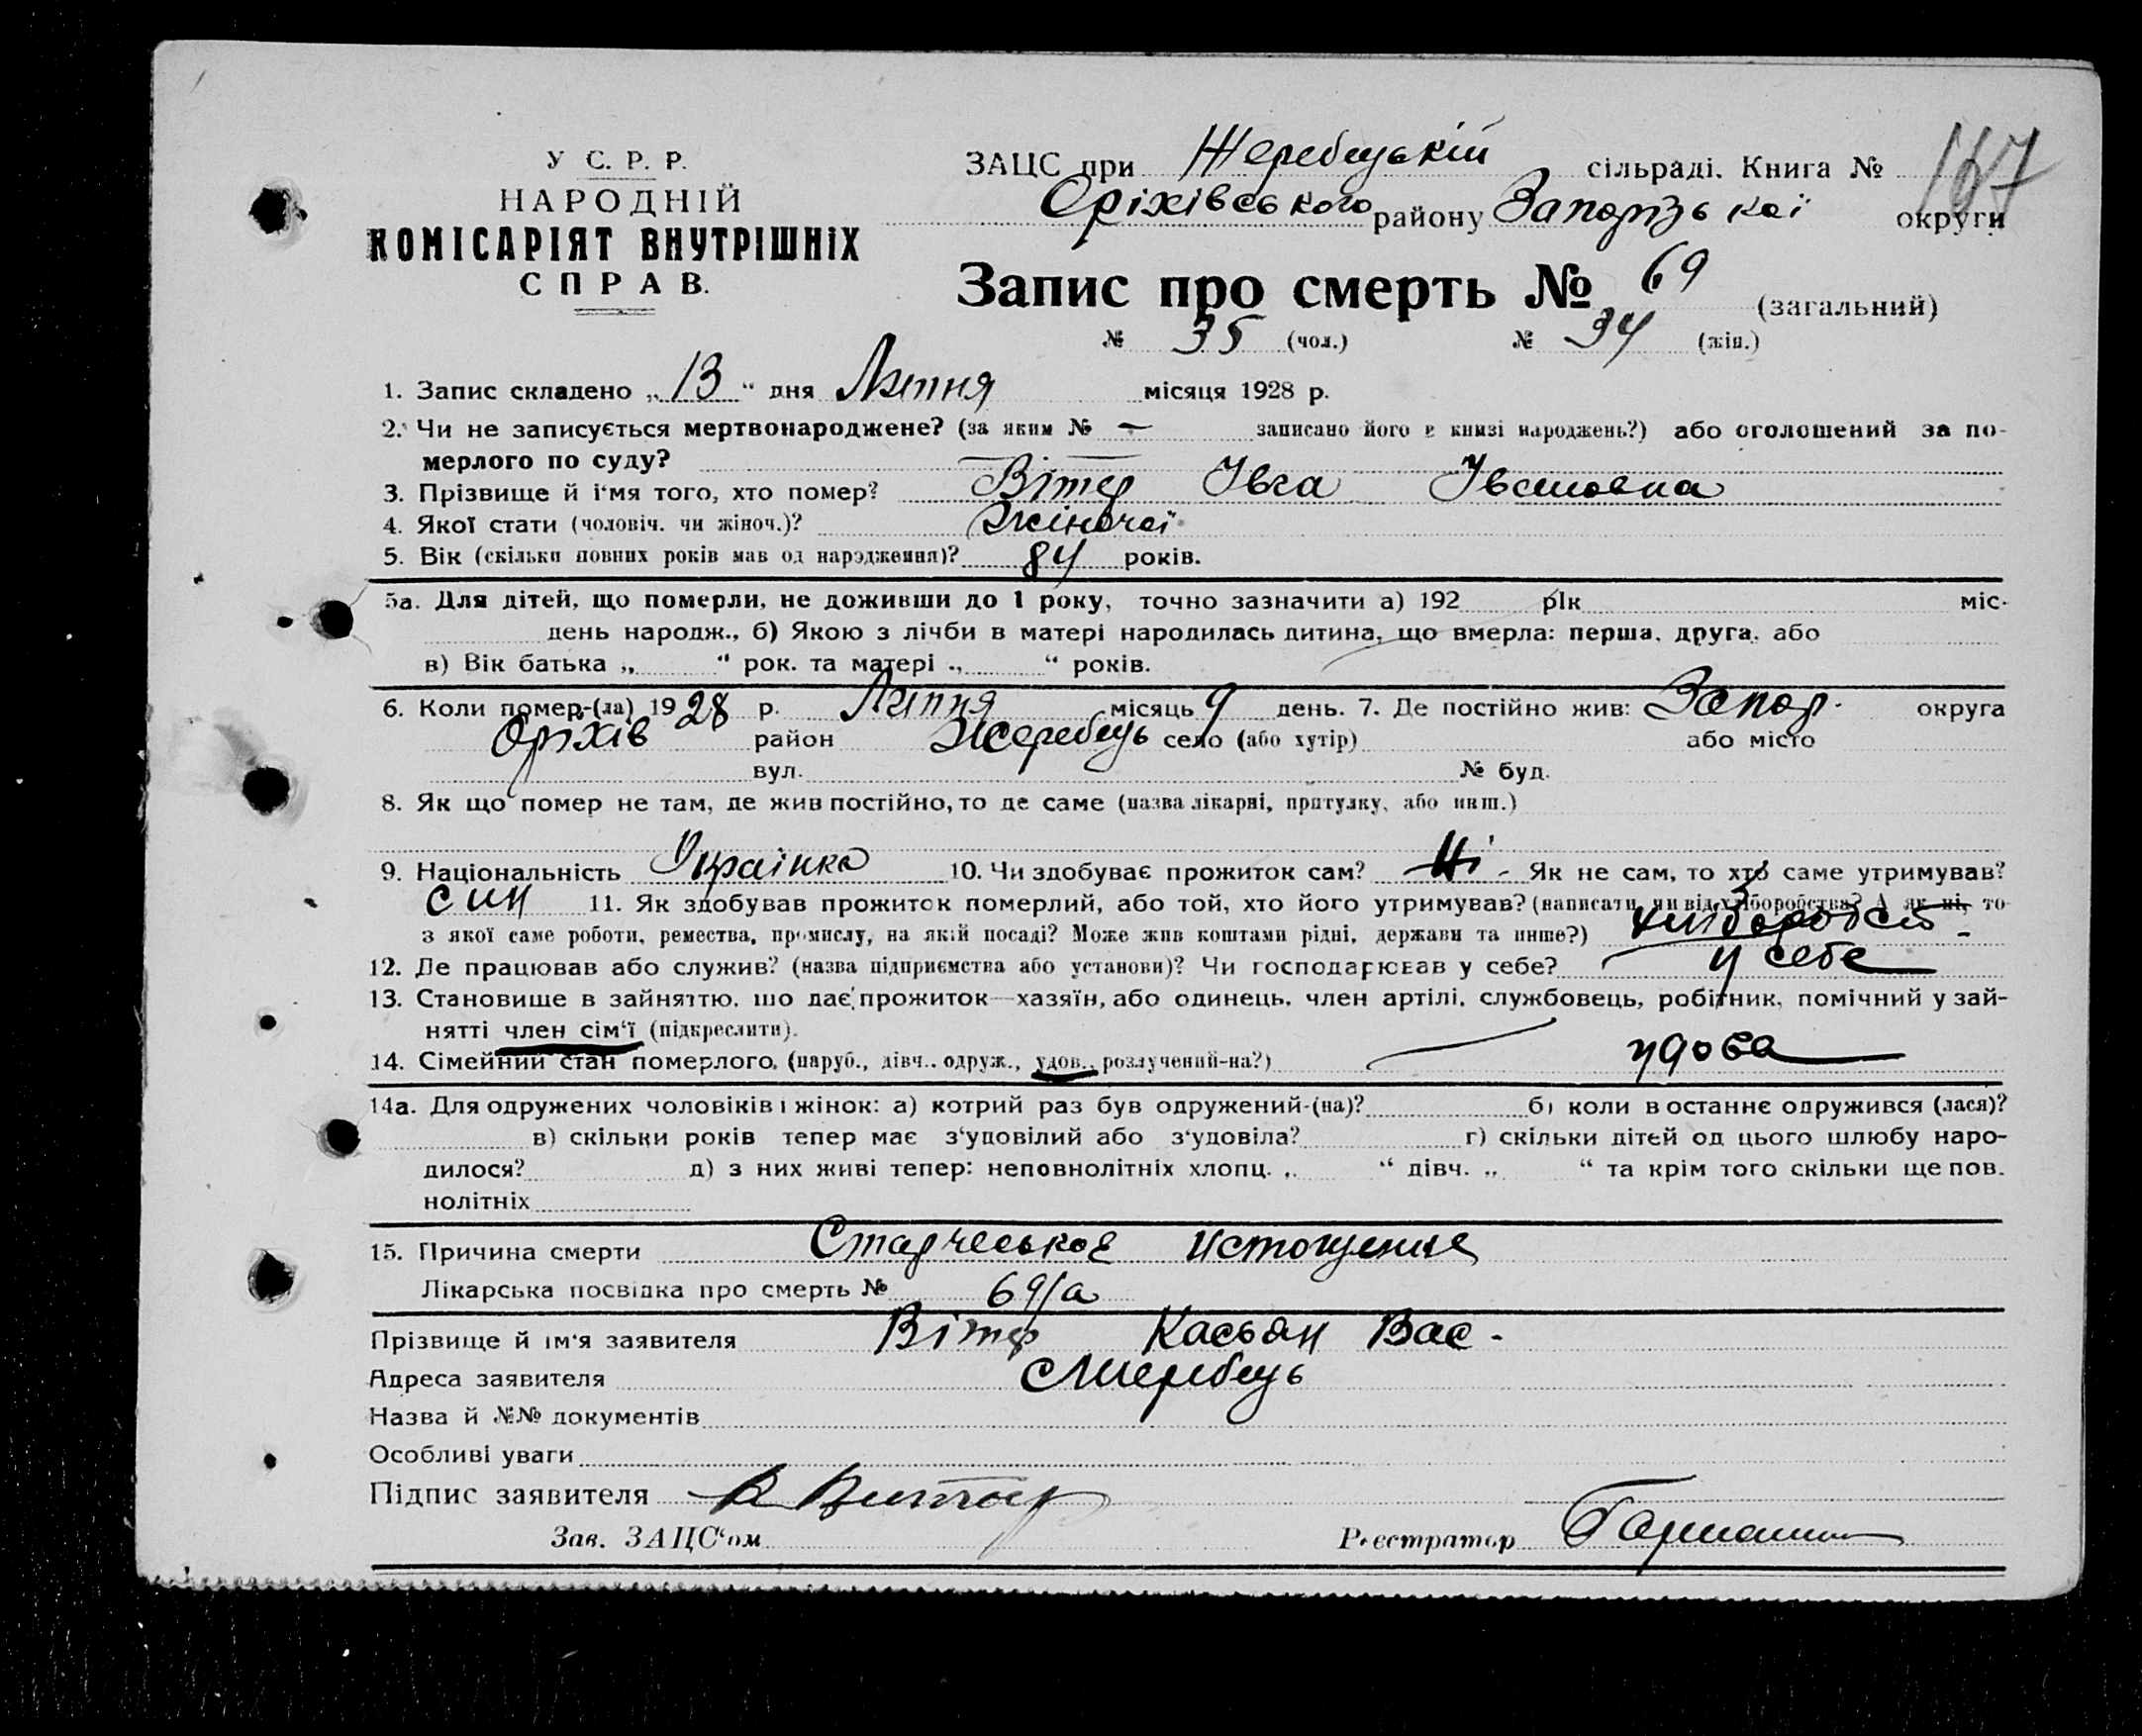 У С. Р. Р.
НАРОДНІЙ
КОМІСАРІЯТ ВНУТРІШНІХ
СПРАВ.
ЗАЦС при Жеребецькій сільраді. Книга №
167
Оріхівського району Запорізької округи
Запис про смерть № 69 (загальний)
№ 35 (чол.) № 34 (жін.)
1. Запис складено „13“ дня Липня місяця 1928 р.
2. Чи не записується мертвонароджене? (за яким № — записано його в книзі народжень?) або оголошений за по-
мерлого по суду?
3. Прізвище й і‘мя того, хто помер? Вітер Івга Івановна
4. Якої стати (чоловіч. чи жіноч.)? Жіночої
5. Вік (скільки повних років мав од народження)? 84 років.
5а. Для дітей, що померли, не доживши до 1 року, точно зазначити а) 192 рік міс.
день народж., б) Якою з лічби в матері народилась дитина, що вмерла: перша, друга, або
в) Вік батька „ “ рок. та матері „ “ років.
6. Коли помер-(ла) 1928 р. Липня місяць 9 день. 7. Де постійно жив: Запор. округа
Оріхів район Жеребець село (або хутір) або місто
вул. № буд.
8. Як що помер не там, де жив постійно, то де саме (назва лікарні, притулку, або инш.)
9. Національність Українка 10. Чи здобуває прожиток сам? Ні - Як не сам, то хто саме утримував?
син 11. Як здобував прожиток померлий, або той, хто його утримував? (написати, чи від хліборобства? А як ні, то
з якої саме роботи, ремества, промислу, на якій посаді? Може жив коштами рідні, держави та инше?)
12. Де працював або служив? (назва підприємства або установи)? Чи господарював у себе? у себе
13. Становище в зайняттю, що дає прожиток—хазяїн, або одинець, член артілі, службовець, робітник, помічний у зай-
нятті член сім‘ї (підкреслити).
14. Сімейний стан померлого, (паруб., дівч., одруж., удов., розлучений-на?) удова
14а. Для одружених чоловіків і жінок: а) котрий раз був одружений-(на)? б) коли в останнє одружився (лася)?
в) скільки років тепер має з‘удовілий або з‘удовіла? г) скільки дітей од цього шлюбу наро-
дилося? д) з них живі тепер: неповнолітніх хлопц. „ “ дівч. „ “ та крім того скільки ще пов.
нолітніх
15. Причина смерти Старческое истощение
Лікарська посвідка про смерть № 69/а
Прізвище й ім‘я заявителя Вітер Касьян Вас-
Адреса заявителя с Жеребець
Назва й №№ документів
Особливі уваги
Підпис заявителя К Витер
Зав. ЗАЦС‘ом Реєстратор